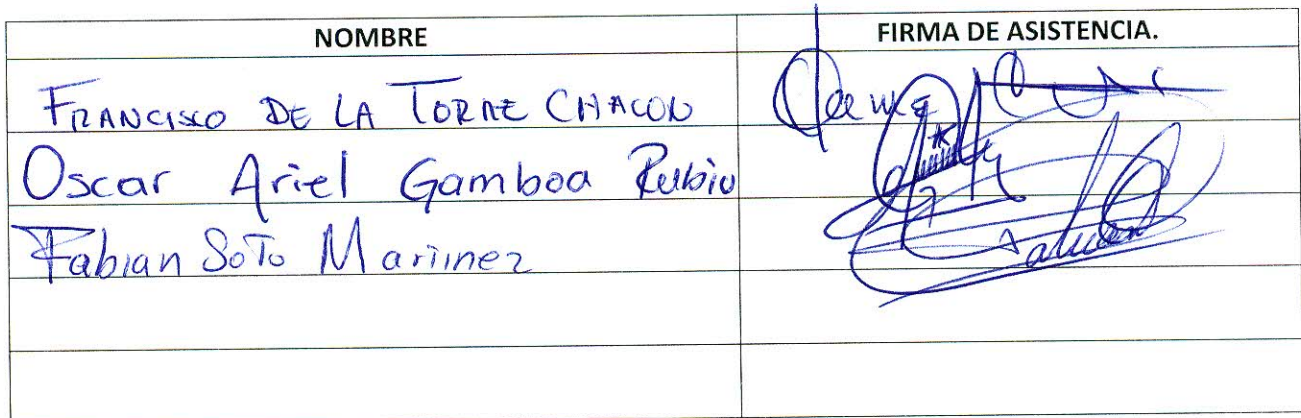 NOMBRE FIRMA DE ASISTENCIA.
FRANCISCO DE LA TORRE CHACON
Oscar Ariel Gamboa Rubio
Fabian Soto Mariinez